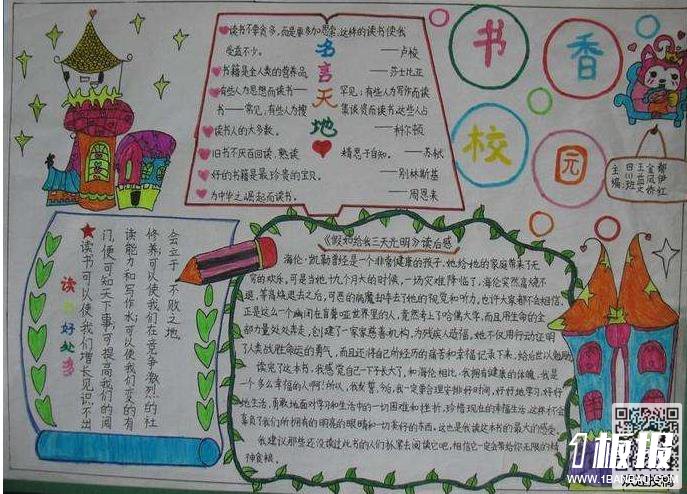 书香校园
名言天地
读书不要贪多,而是要多加思索,这样的读书使我
受益不少。 ——卢梭
书籍是全人类的营养品。 ——莎士比亚
有些人为思想而读书——罕见;有些人为写作而读
书——常见;有些人为搜集谈资而读书,这些人占
读书人的大多数。 ——科尔顿
旧书不厌百回读,熟读精思子自知。 ——苏轼
好的书籍是最珍贵的宝贝。 ——别林斯基
为中华之崛起而读书。 ——周恩来
主编:
读书好处多
读书可以使我们增长见识,不出
门,便可知天下事;可提高我们的阅
读能力和写作水,可以使我们变的有
修养;可以使我们在竞争激烈的社
会立于不败之地。
《假如给我三天光明》读后感
海伦·凯勒曾经是一个非常健康的孩子,她给她的家庭带来了无
穷的欢乐,可是当她十九个月大的时候,一场灾难降临了,海伦突然高烧不
退,等高烧退去之后,可恶的病魔却夺去了她的视觉和听力,也许大家都不会相信,
正是这么一个幽闭在盲聋哑世界里的人,竟然考上了哈佛大学,而且用生命的全
部力量处处奔走,创建了一家家慈善机构,为残疾人造福,她不仅用行动证明
了人类战胜命运的勇气,而且还将自己所经历的痛苦和幸福记录下来,给后世以勉励。
读完了这本书,我感觉自己一下子长大了,和海伦相比,我拥有健康的体魄,我是
一个多么幸福的人啊!所以,我发誓:今后,我一定要合理安排好时间,好好地学习,好好
地生活,勇敢地面对学习和生活中的一切困难和挫折,珍惜现在的幸福生活,这样才不会
辜负了我们所拥有的明亮的眼睛和一切美好的东西。这也是我读这本书的最大的感受。
我建议那些还没读过此书的人们抓紧去阅读它吧,相信它一定会带给你无限的精
神食粮。
板报
WWW.1BANBAO.COM